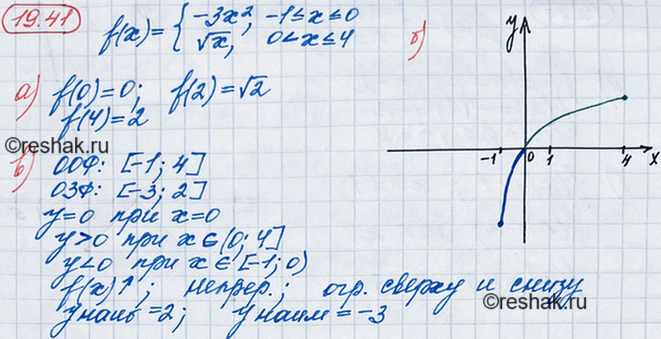 19.41 f(x)= { -3x², -1≤x≤0
√x, 0<x≤4
а) f(0)=0; f(2)=√2
f(4)=2
©reshak.ru
в) ООФ: [-1; 4]
ОЗФ: [-3; 2]
y=0 при x=0
y>0 при x∈(0; 4]
y<0 при x∈[-1; 0)
f(x)↑; непрер.; огр. сверху и снизу
y наиб =2; y наим = -3
б)
y
-1 0 1 4 x
©reshak.ru